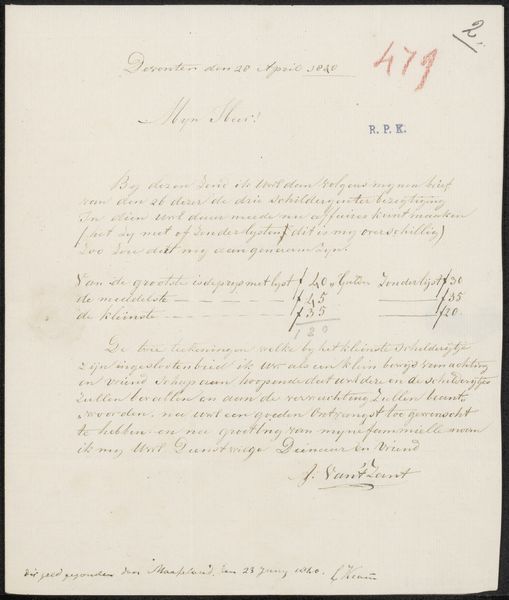 2.
479
Deventer den 28 April 1840
Myn Heer!
R. P. K.
By dezen Zend ik UWl dan volgens mynen brief
van den 26 dezer de drie schilderyen ter bezigtiging
In dien UWl daar meede nu affaires kunt maaken
(het zy met of Zonder lysten) dit is my overschillig)
Zoo Zou dit my aangenaam zyn.
Van de grootste is de prys met lyst f 40 Zonder lyst f 30
de middelste f 45 f 35
de kleinste f 35 f 20
120
De twee teekeningen welke by het kleinste schilderytje
Zyn ingesloten bied ik UWl als een klein bewys van achting
en vriendschap aan hoopende dat UWl die en de schilderytjes
Zullen bevallen en aan de verwachting Zullen beant-
woorden. na UWl een goeden ontvangst toe gewenscht
te hebben en na groeting van myne fammielle noem
ik my UWl Dienstwillige Dienaar en Vriend
J. Van't Zant
dit geld gezonden door Maaseland, den 23 Juny 1840.